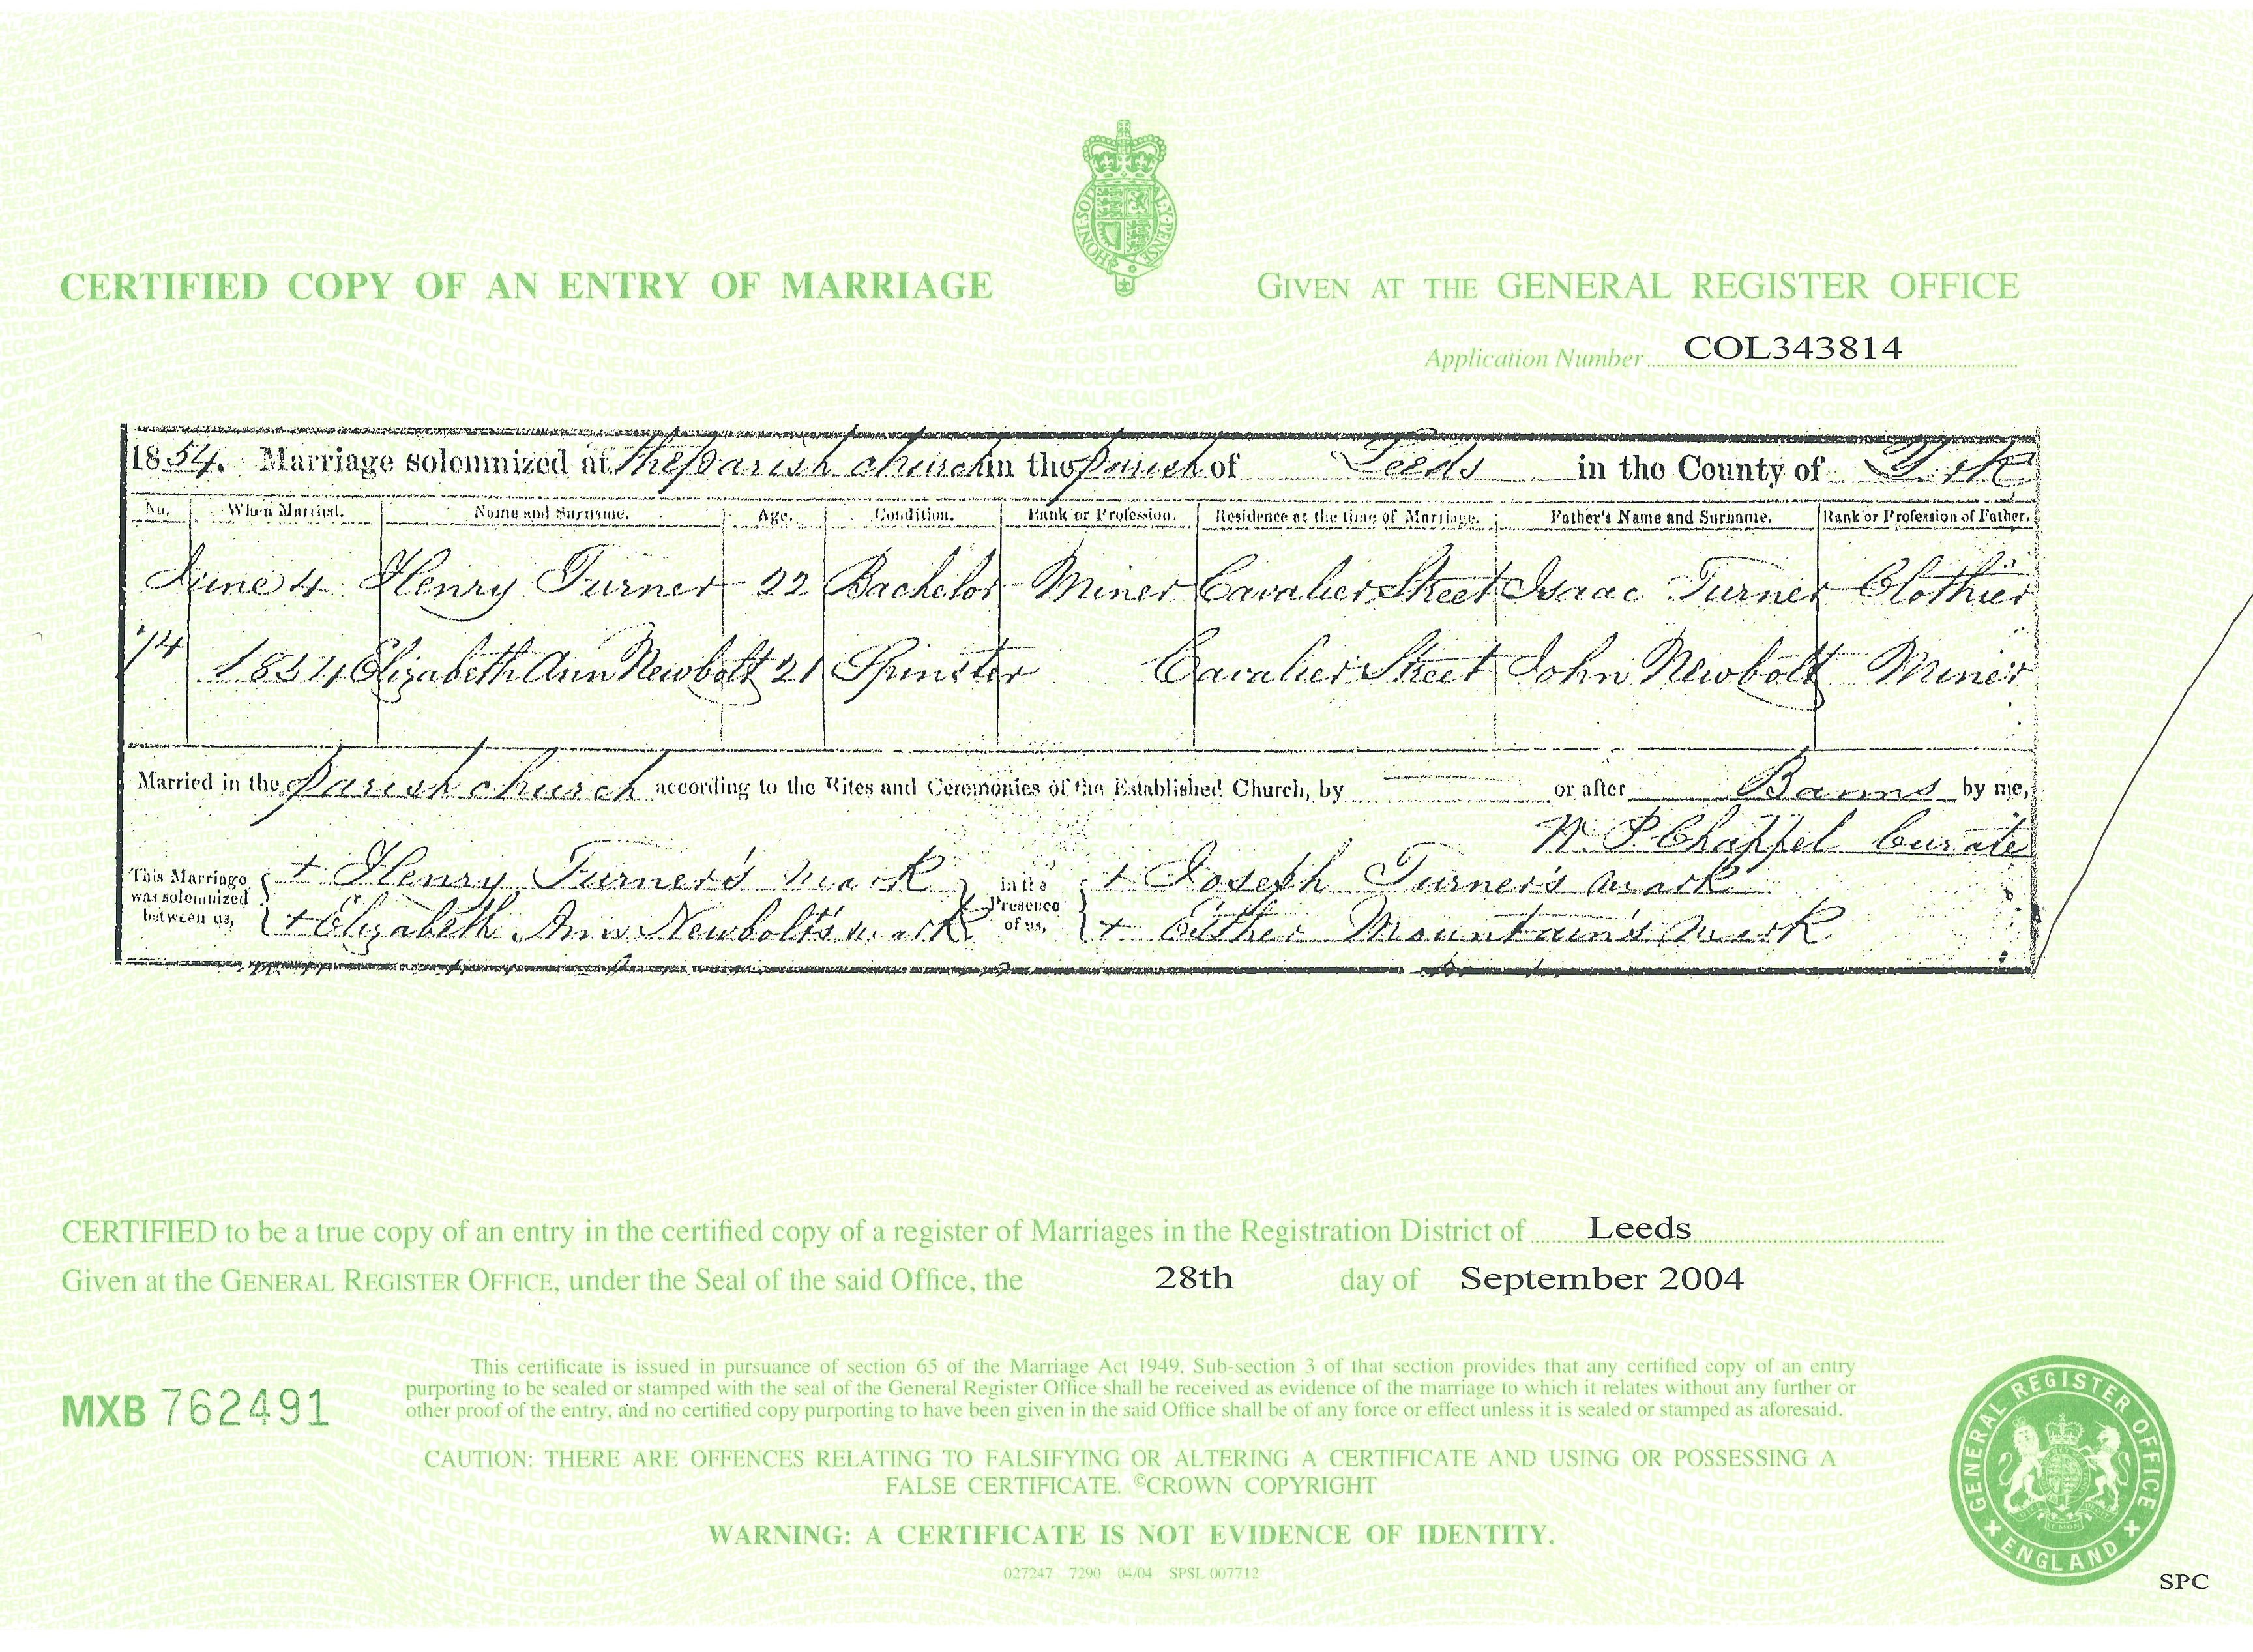 HONI·SOIT QUI MAL·Y·PENSE
CERTIFIED COPY OF AN ENTRY OF MARRIAGE
GIVEN AT THE GENERAL REGISTER OFFICE
Application Number COL343814
1854. Marriage solemnized at the Parish church in the Parish of Leeds in the County of York
No. When Married. Name and Surname. Age. Condition. Rank or Profession. Residence at the time of Marriage. Father's Name and Surname. Rank or Profession of Father.
June 4 Henry Turner 22 Bachelor Miner Cavalier Street Isaac Turner Clothier
74 1854 Elizabeth Ann Newbolt 21 Spinster Cavalier Street John Newbolt Miner
Married in the Parish church according to the Rites and Ceremonies of the Established Church, by or after Banns by me,
W. P. Chappel Curate
This Marriage was solemnized between us, + Henry Turner's mark in the Presence of us, + Joseph Turner's mark
+ Elizabeth Ann Newbolt's mark + Esther Mountain's mark
CERTIFIED to be a true copy of an entry in the certified copy of a register of Marriages in the Registration District of Leeds
Given at the GENERAL REGISTER OFFICE, under the Seal of the said Office, the 28th day of September 2004
This certificate is issued in pursuance of section 65 of the Marriage Act 1949. Sub-section 3 of that section provides that any certified copy of an entry
purporting to be sealed or stamped with the seal of the General Register Office shall be received as evidence of the marriage to which it relates without any further or
other proof of the entry, and no certified copy purporting to have been given in the said Office shall be of any force or effect unless it is sealed or stamped as aforesaid.
MXB 762491
CAUTION: THERE ARE OFFENCES RELATING TO FALSIFYING OR ALTERING A CERTIFICATE AND USING OR POSSESSING A
FALSE CERTIFICATE. ©CROWN COPYRIGHT
WARNING: A CERTIFICATE IS NOT EVIDENCE OF IDENTITY.
027247 7290 04/04 SPSL 007712
GENERAL REGISTER OFFICE
ENGLAND
SPC